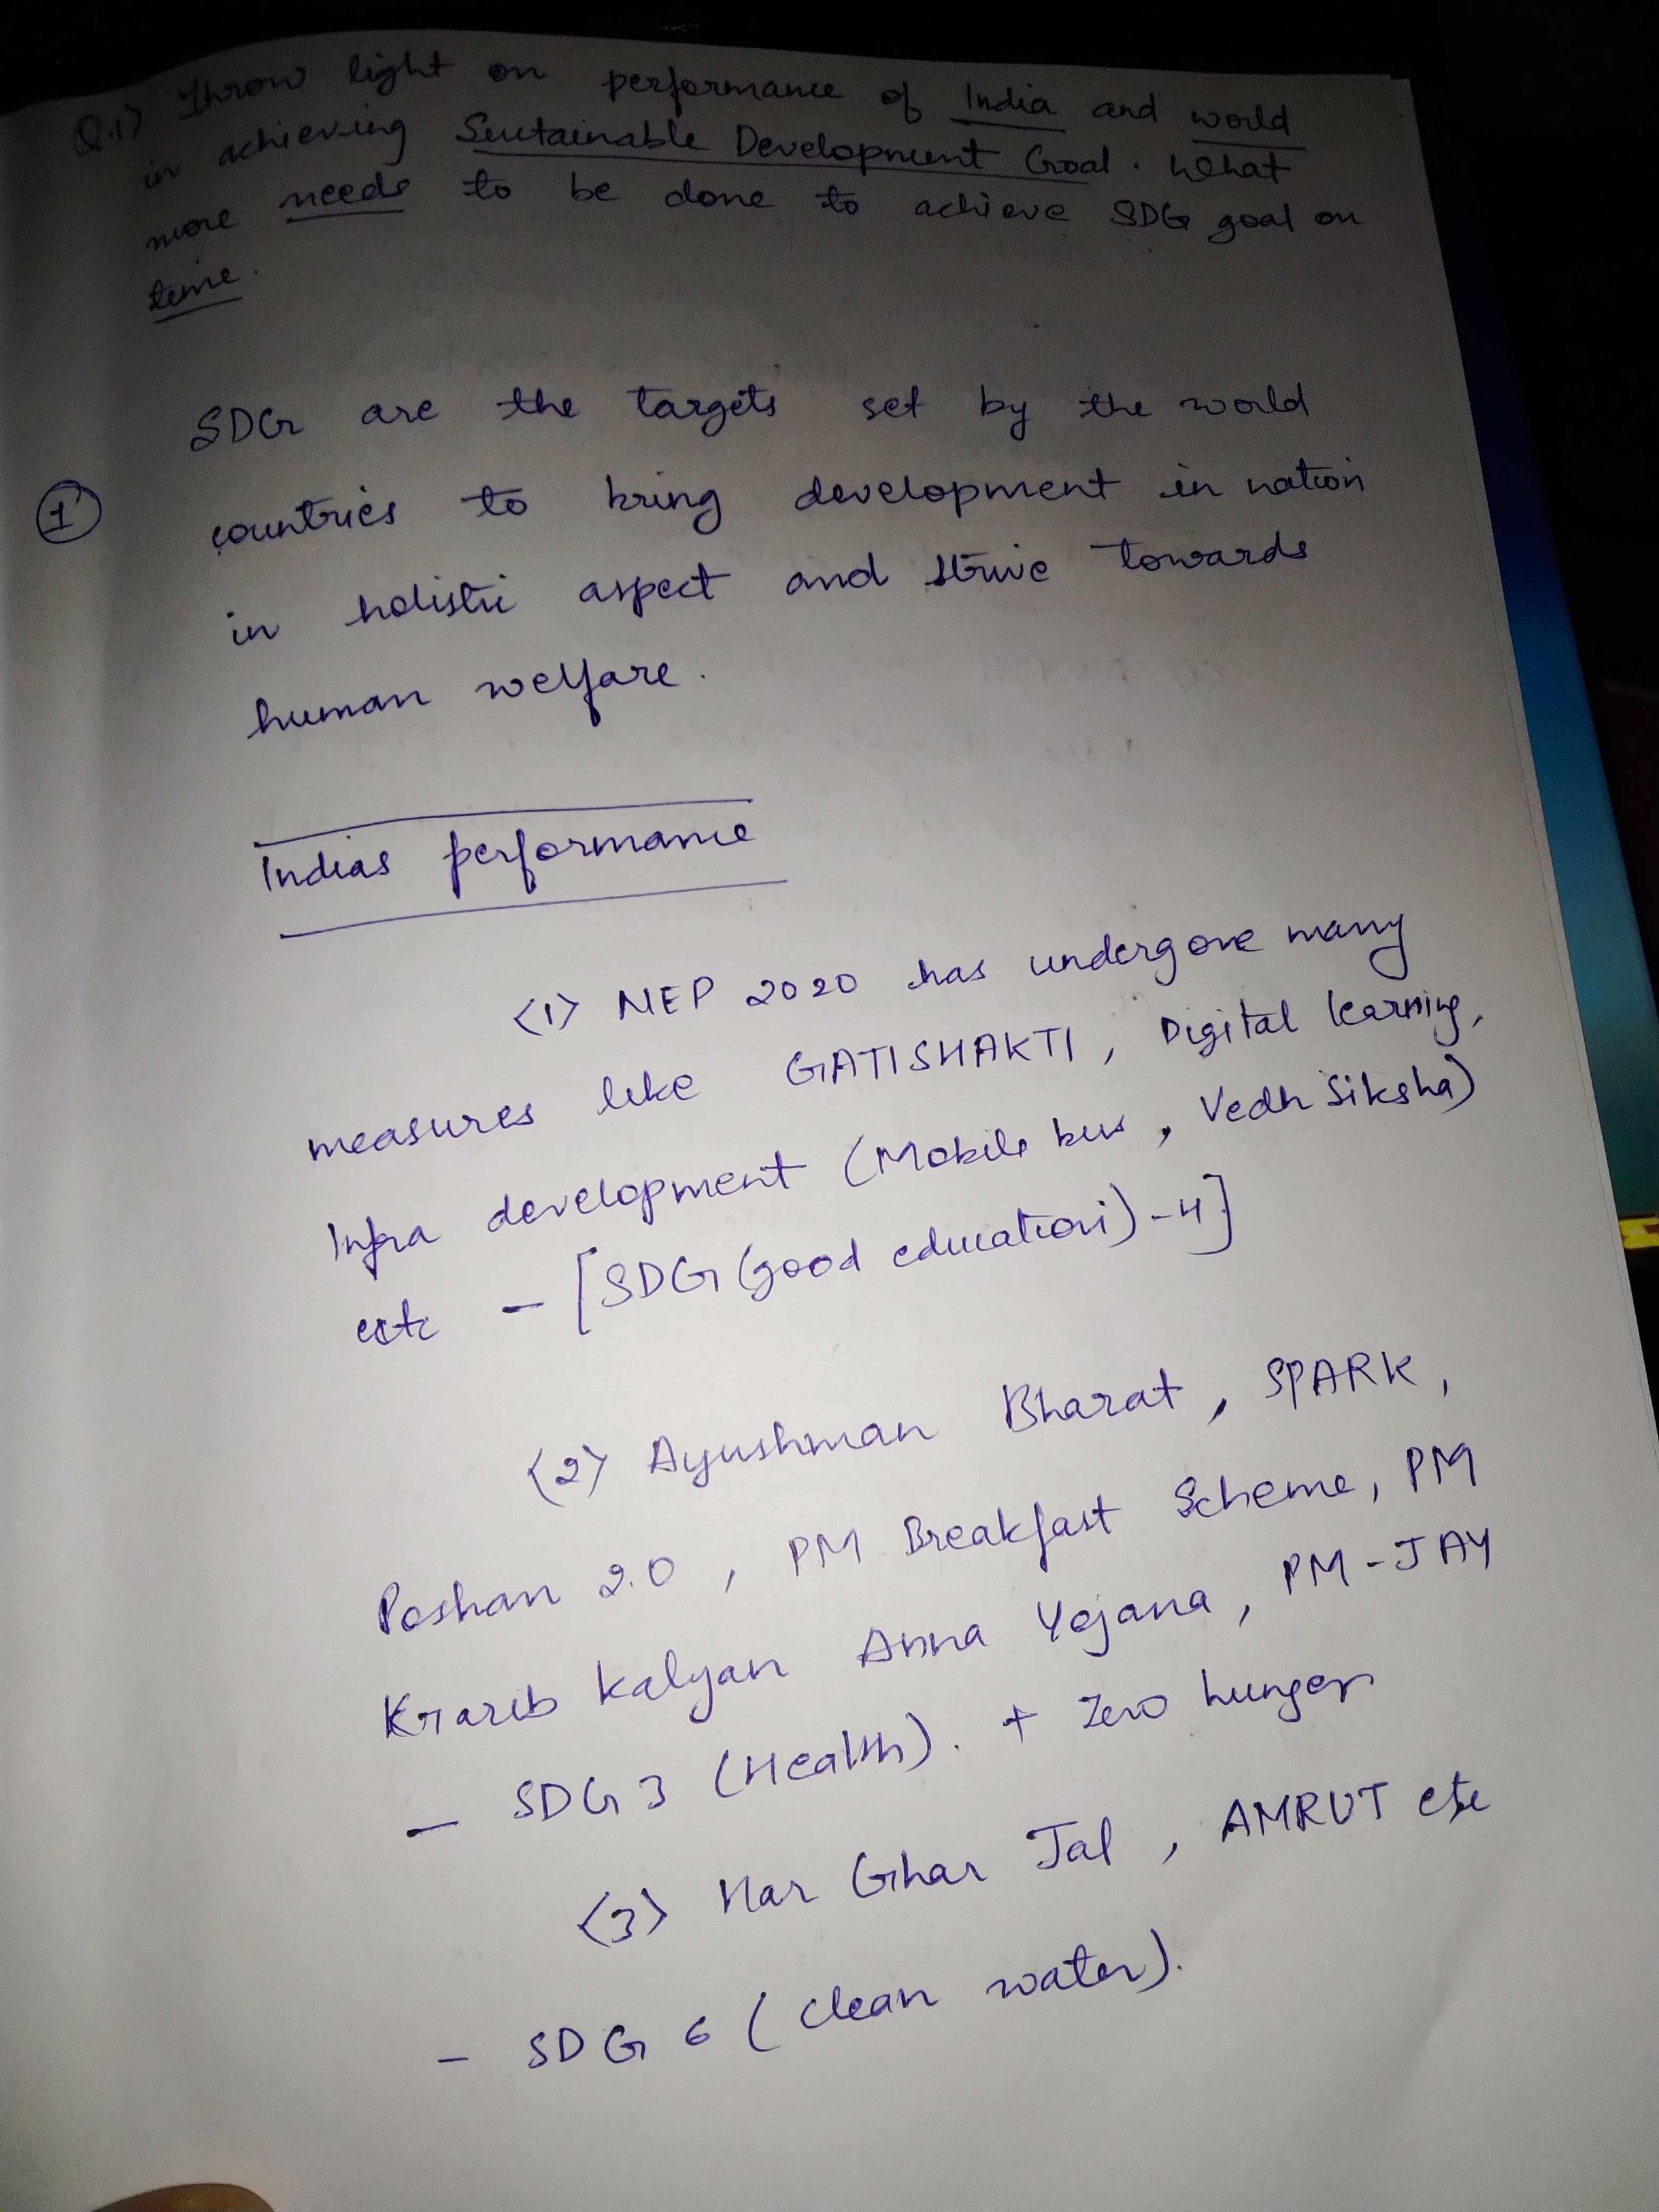 Q.1) Throw light on performance of India and world
in achieving Sustainable Development Goal. What
more needs to be done to achieve SDG goal on
time.
SDG are the targets set by the world
1
countries to bring development in nation
in holistic aspect and strive towards
human welfare.
Indias performance
<1> NEP 2020 has undergone many
measures like GATISHAKTI, Digital learning,
Infra development (Mobile bus, Vedh Siksha)
ectc - [SDG (good education) - 4]
<2> Ayushman Bharat, SPARK,
Poshan 2.0, PM Breakfast Scheme, PM
Garib Kalyan Anna Yojana, PM-JAY
- SDG 3 (Health). + Zero hunger
<3> Har Ghar Jal, AMRUT etc
- SDG 6 (clean water).